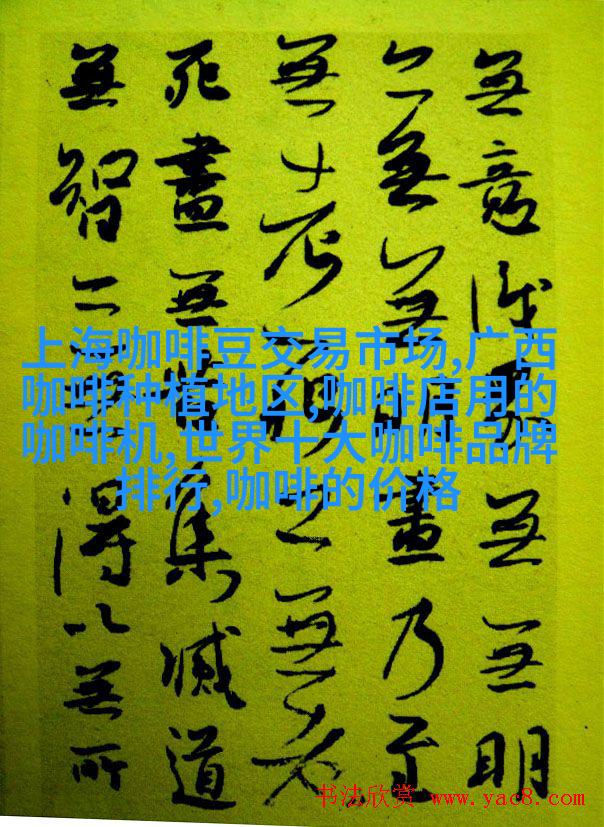 無意識界無無明
亦無無明盡乃至
無老死亦無老
死盡無苦集滅道
無智亦無得以無所
上海咖啡豆交易市场,广西
咖啡种植地区,咖啡店用的
咖啡机,世界十大咖啡品牌
排行,咖啡的价格
书法欣赏 www.yac8.com